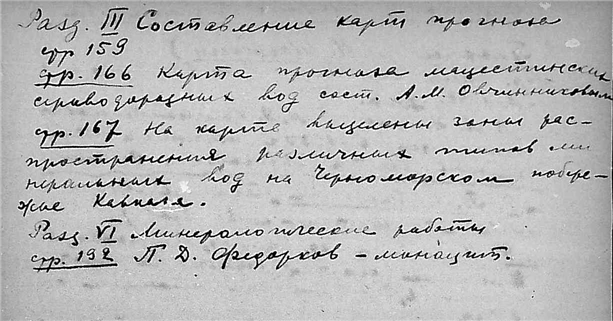 Разд. III Составление карт прогноза
стр 159
стр. 166 Карта прогноза мацестинских
сероводородных вод сост. А.М. Овчинниковым
стр. 167 На карте выделены зоны рас-
пространения различных типов ми
неральных вод на Черноморском побере-
жье Кавказа.
Разд. VI Минералогические работы
стр. 192 П. Д. Федорков – монацит.